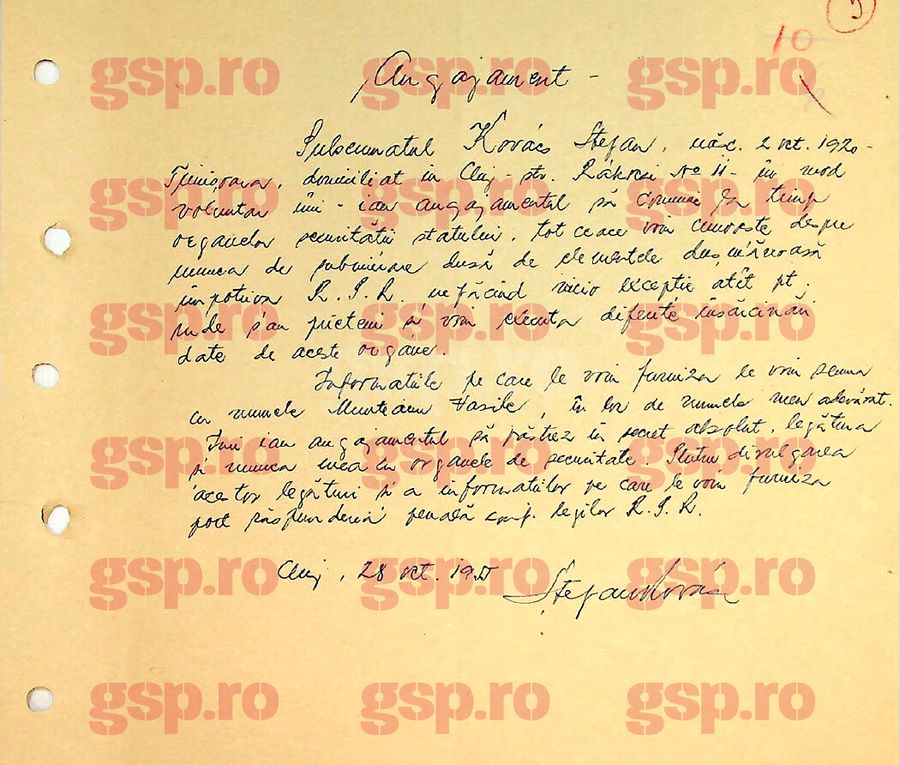 5
10
Angajament -
Subsemnatul Kovács Ștefan, născ. 2 oct. 1920 -
Timișoara, domiciliat in Cluj - str. Rákoczi No 11 - în mod
voluntar îmi - iau angajamentul să comunic la timp
organelor securității statului, tot ceace voi cunoaște despre
munca de subminare dusă de elementele dușmănoasă
împotriva R.P.R. nefăcînd nicio excepție atît pt.
rude s'au prieteni și voi executa diferite însărcinări
date de aceste organe.
Informatiile pe care le voi furniza le voi semna
cu numele Munteanu Vasile, în loc de numele meu adevărat.
Imi iau angajamentul să păstrez in secret absolut, legătura
și munca mea cu organele de securitate. Pentru divulgarea
acestor legături și a informatiilor pe care le voi furniza
port răspunderea penală conf. legilor R.P.R.
Cluj, 28 oct. 195
Ștefan Kovács
gsp.ro gsp.ro gsp.ro
gsp.ro gsp.ro gsp.ro
gsp.ro gsp.ro gsp.ro
gsp.ro gsp.ro gsp.ro
gsp.ro gsp.ro gsp.ro
gsp.ro gsp.ro gsp.ro